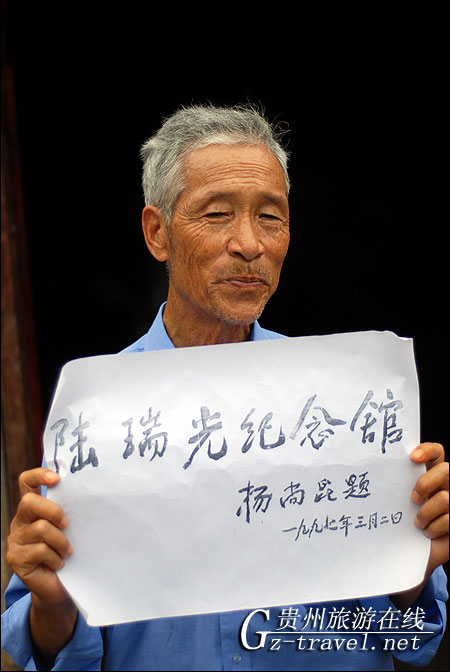 陆瑞光纪念馆
杨尚昆题
一九九七年三月二日
贵州旅游在线
Gz-travel.net